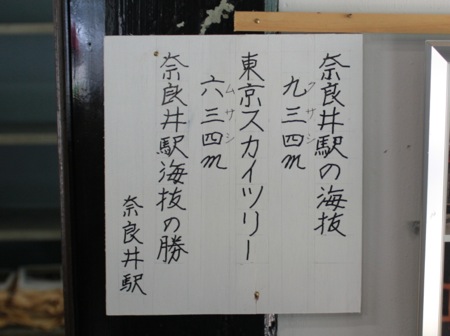 奈良井駅の海抜
九三四m
クサシ
東京スカイツリー
六三四m
ムサシ
奈良井駅海抜の勝
奈良井駅